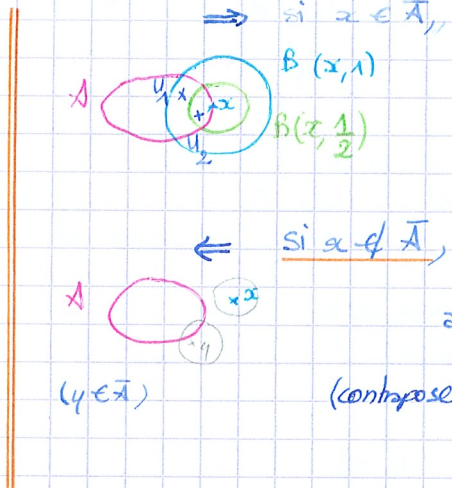 ⇒ si x ∈ Ā,
B(x,1)
A u₁ x
u₂ B(x, 1/2)
⇐ si x ∉ Ā,
A x
y
(y ∈ Ā) (contrapose